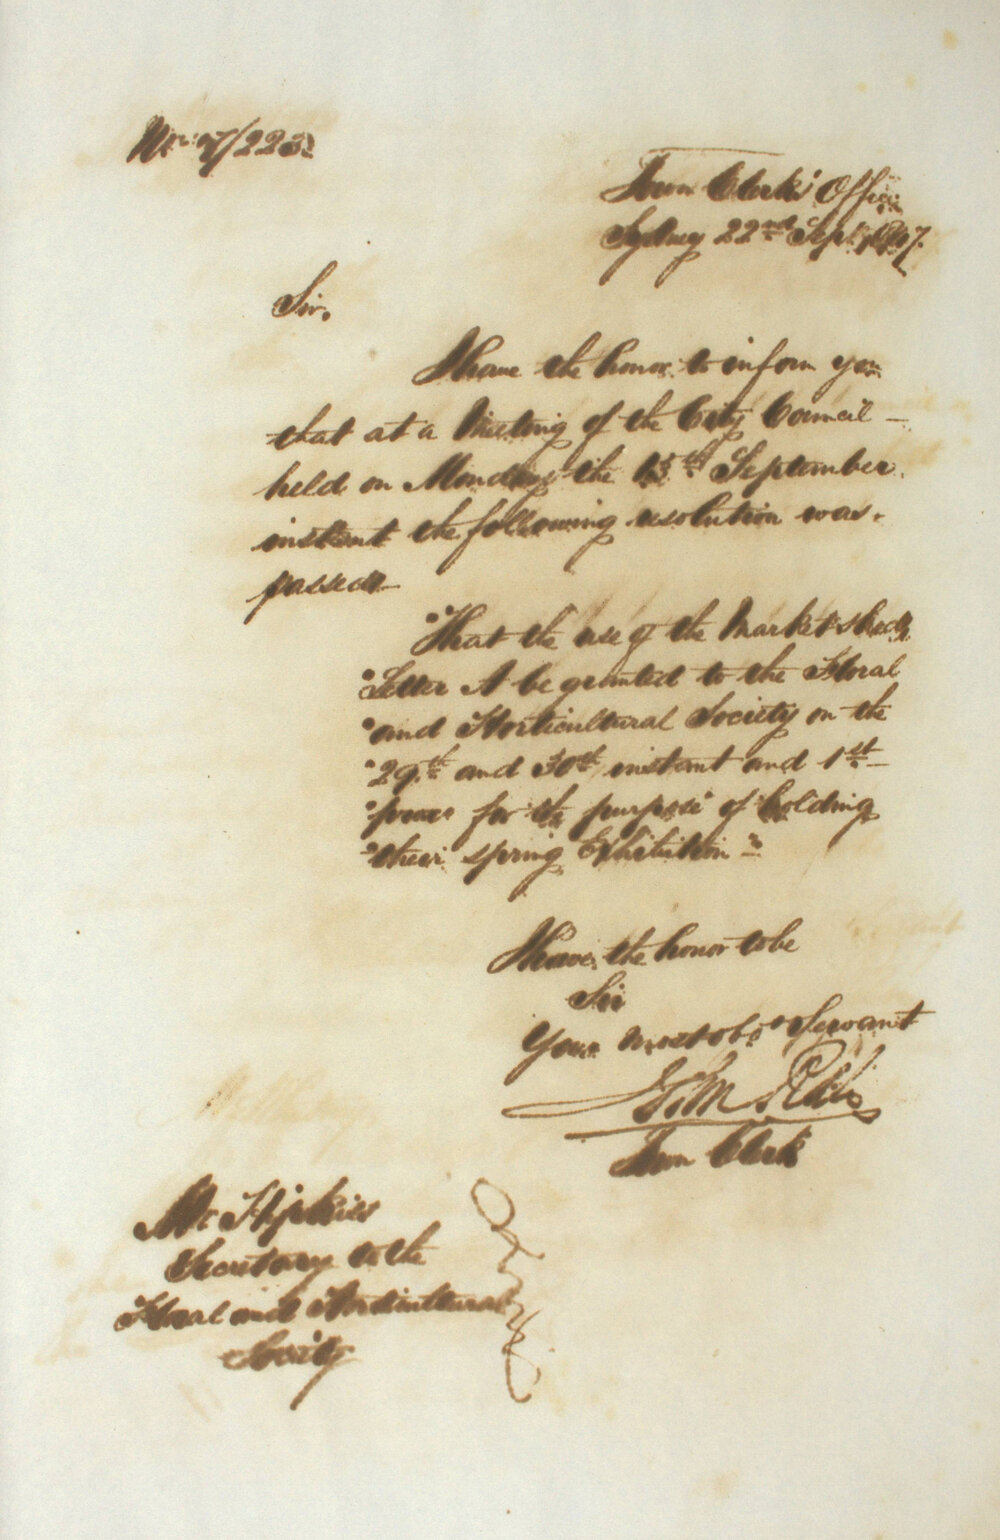 47/223
Town Clerk's Office
Sydney 22nd Sept. 1847.
Sir,
I have the honor to inform you
that at a Meeting of the City Council
held on Monday the 13th September
instant the following resolution was
passed
"That the use of the Market sheds
"Letter A be granted to the Floral
"and Horticultural Society on the
"29th and 30th instant and 1st
"prox for the purpose of holding
"their spring Exhibition"
I have the honor to be
Sir
Your most obt Servant
John Rae
Town Clerk
Mr Hipkiss
Secretary to the
Floral and Horticultural
Society